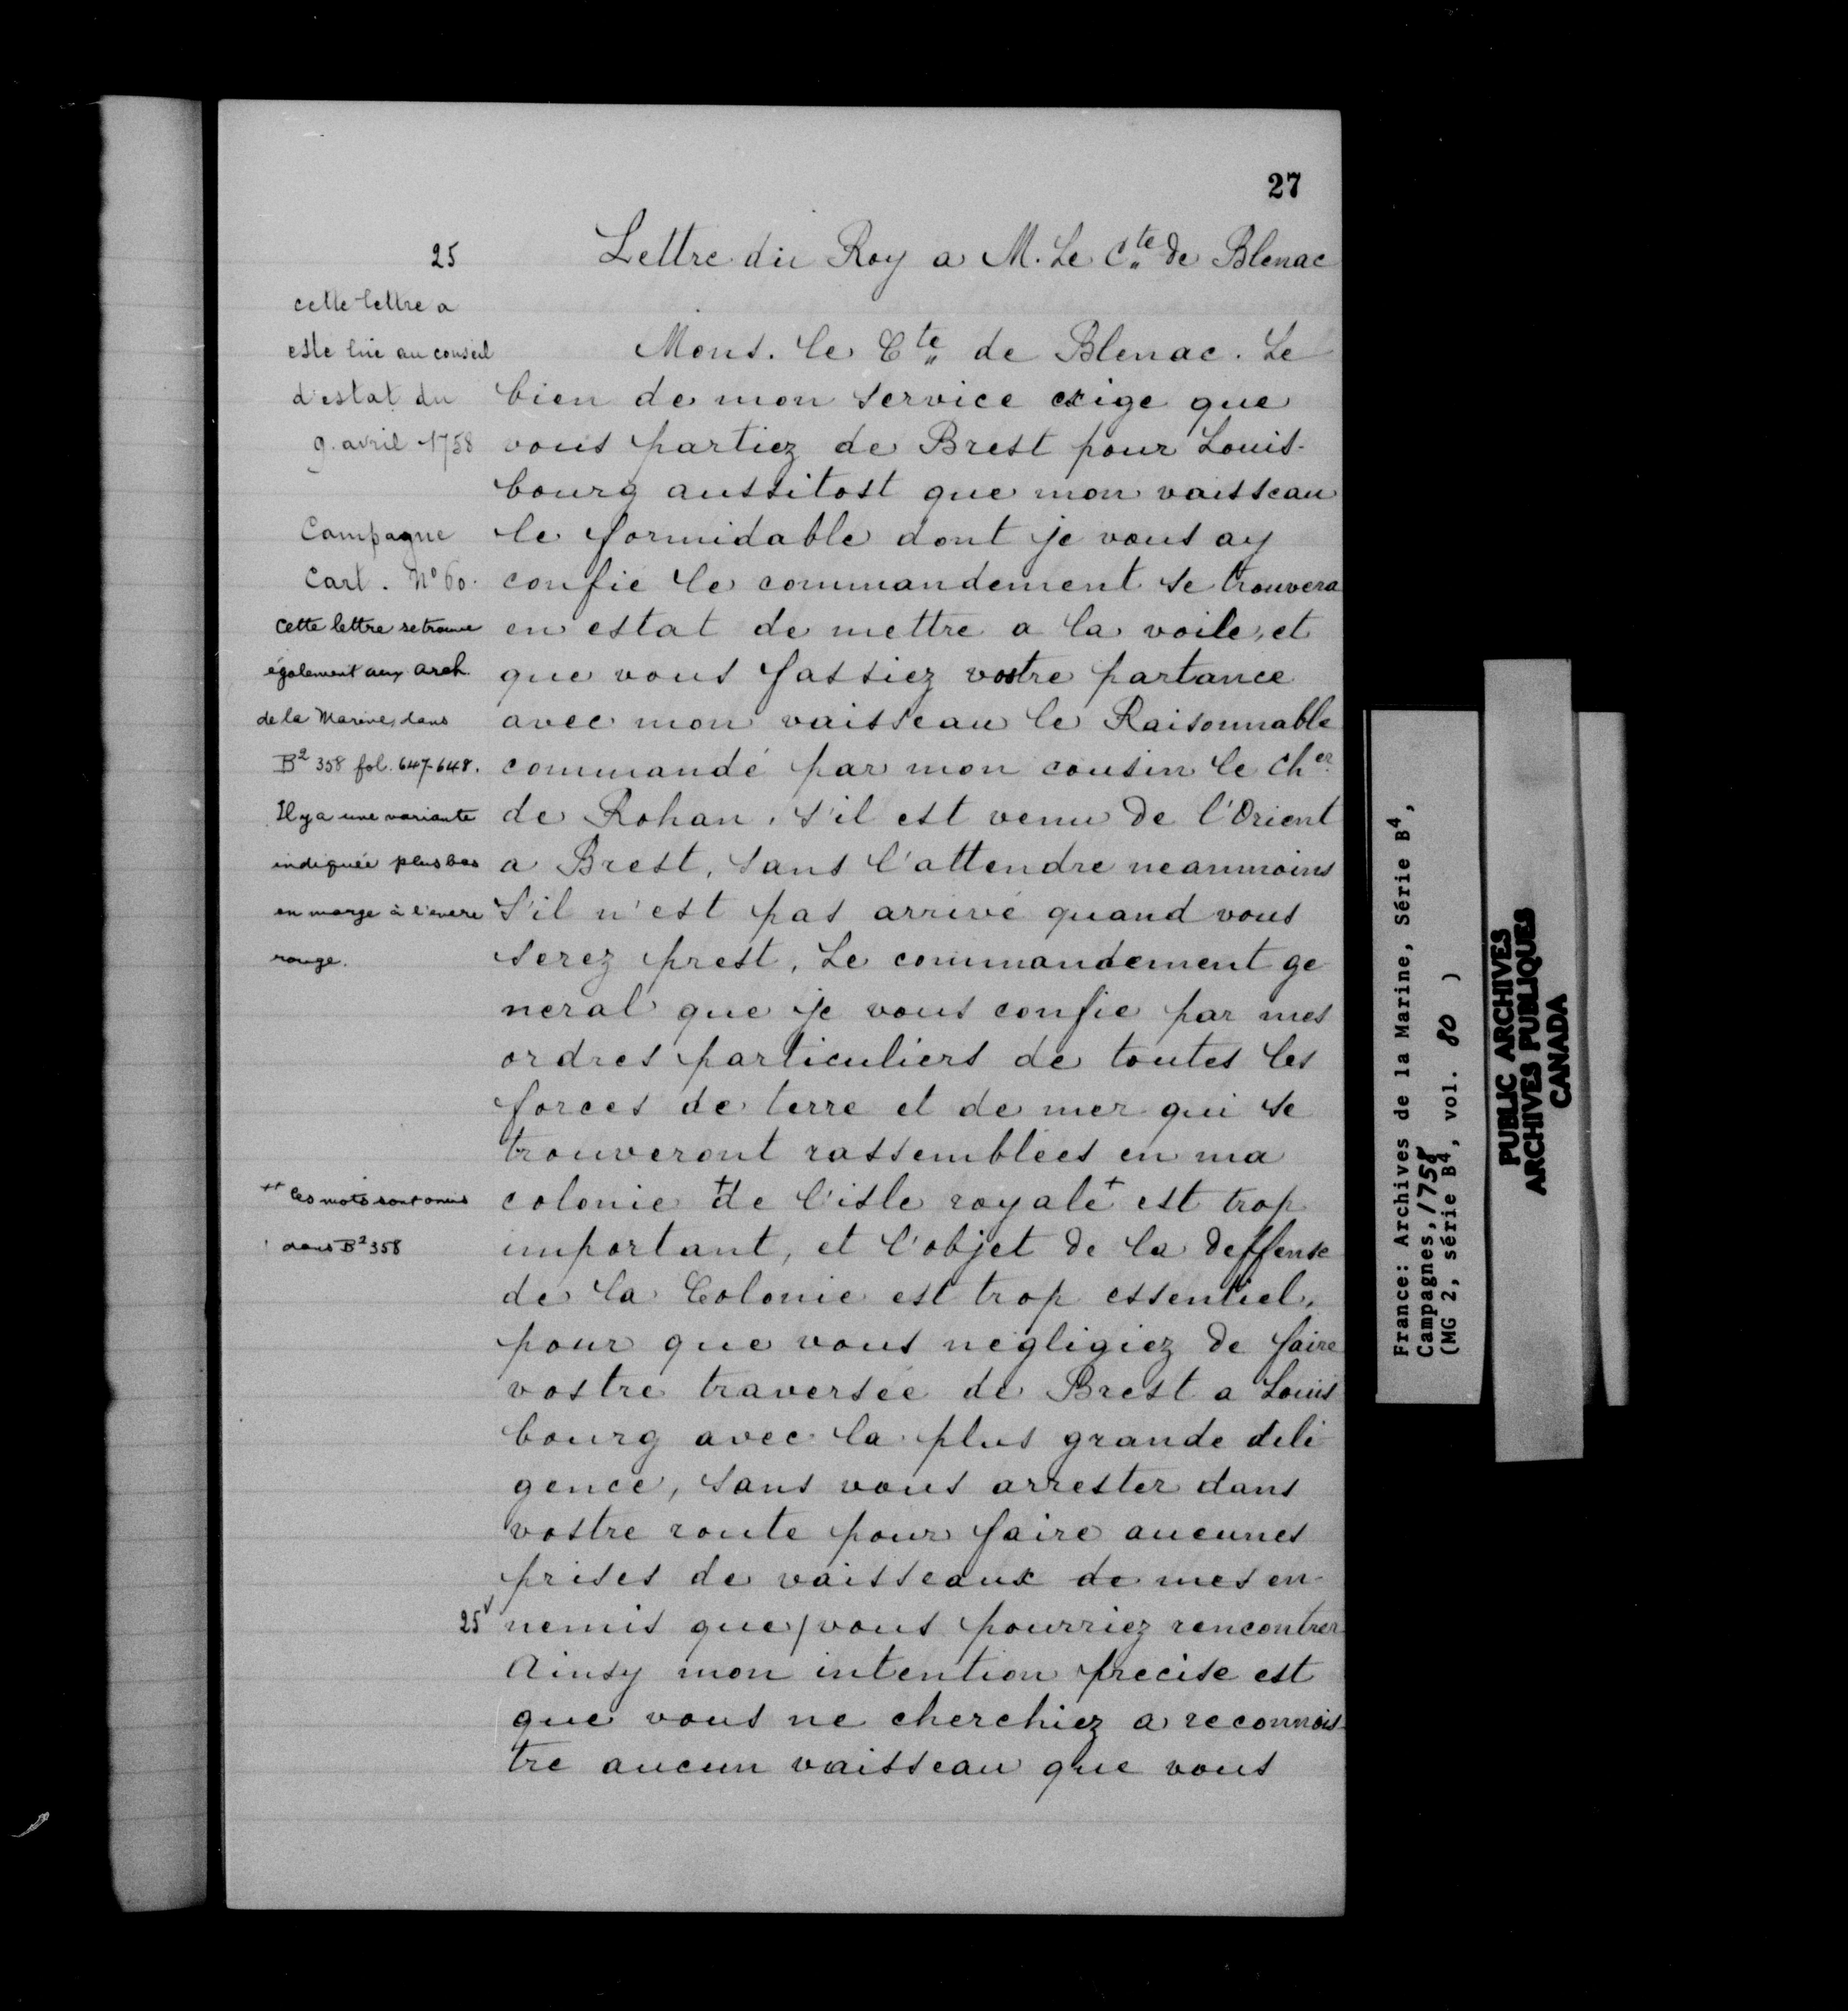 27
25
Lettre du Roy a M. Le Cte de Blenac
cette lettre a
este lue au conseil
d'estat du
9. avril 1758
Campagne
Cart. No 60.
Cette lettre se trouve
également aux Arch
de la Marine, dans
B2 358 fol. 647-648.
Il y a une variante
indiquée plus bas
en marge à l'encre
rouge.
Mons. le Cte de Blenac. Le
bien de mon service exige que
vous partiez de Brest pour Louis-
bourg aussitost que mon vaisseau
le formidable dont je vous ay
confié le commandement se trouvera
en estat de mettre a la voile, et
que vous fassiez vostre partance
avec mon vaisseau le Raisonnable
commandé par mon cousin le Cher
de Rohan, s'il est venu de l'Orient
a Brest, sans l'attendre neanmoins
S'il n'est pas arrivé quand vous
serez prest, Le commandement ge
neral que je vous confie par mes
ordres particuliers de toutes les
forces de terre et de mer qui se
trouveront rassemblées en ma
colonie + de l'isle royale + est trop
important, et l'objet de la deffense
de la Colonie est trop essentiel,
pour que vous négligiez de faire
vostre traversée de Brest a Louis
bourg avec la plus grande dili
gence, sans vous arrester dans
vostre route pour faire aucunes
prises de vaisseaux de mes en-
nemis que / vous pourriez rencontrer
Ainsy mon intention precise est
que vous ne cherchiez a reconnois-
tre aucun vaisseau que vous
++ Ces mots sont omis
dans B2 358
25v
France: Archives de la Marine, Série B4,
Campagnes, 1758
(MG 2, série B4, vol. 80 )
PUBLIC ARCHIVES
ARCHIVES PUBLIQUES
CANADA